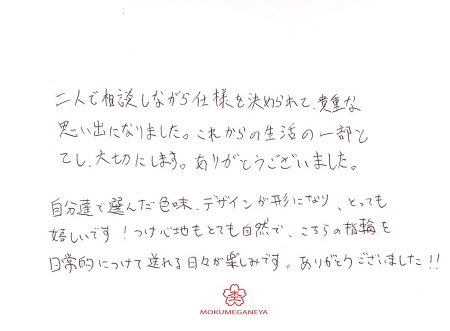 二人で相談しながら仕様を決められて、貴重な
思い出になりました。これからの生活の一部と
てし、大切にします。ありがとうございました。
自分達で選んだ色味、デザインが形になり、とっても
嬉しいです！つけ心地もとても自然で、こちらの指輪を
日常的につけて送れる日々が楽しみです。ありがとうございました!!
MOKUMEGANEYA